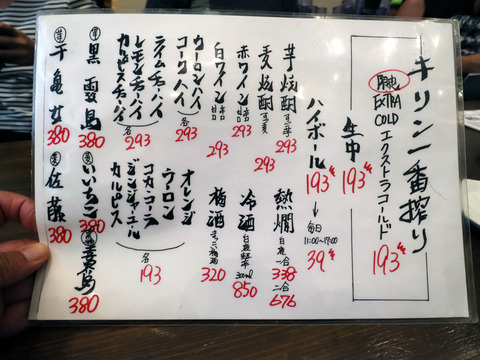 キリン一番搾り
限定 EXTRA COLD エクストラコールド 193
生中 193
ハイボール 193 → 毎日 11:00~17:00 39
芋焼酎 293
麦焼酎 293
赤ワイン 293
白ワイン 293
ウーロンハイ
コークハイ
各 293
ライムチューハイ
レモンチューハイ
カルピスチューハイ
各 293
芋 黒霧島 380
芋 千亀女 380
熱燗 一合 338 二合 676
冷酒 300ml 850
梅酒 320
オレンジ
ウーロン
コカ・コーラ
ジンジャーエール
カルピス
各 193
いいちこ 380
佐藤 380
380